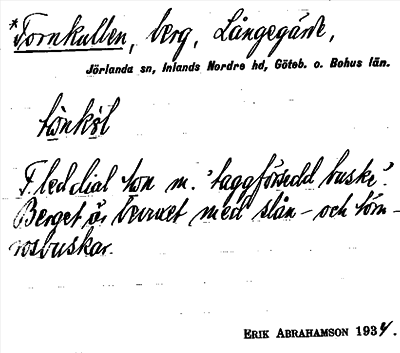 *Tornkullen, berg, Långegärde,
Jörlanda sn, Inlands Nordre hd, Göteb. o. Bohus län.
tønkøl
F. led dial tøn m. 'taggförsedd buske'.
Berget är beväxt med slån- och törn-
rosbuskar.
ERIK ABRAHAMSON 1934.